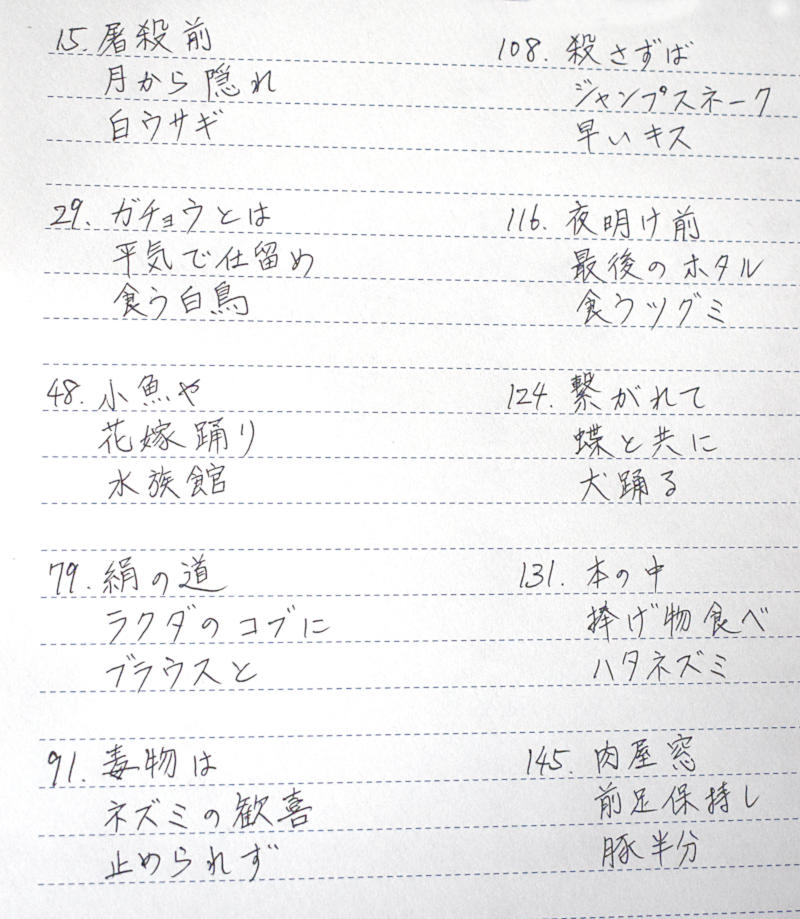 15. 屠殺前
月から隠れ
白ウサギ
29. ガチョウとは
平気で仕留め
食う白鳥
48. 小魚や
花嫁踊り
水族館
79. 絹の道
ラクダのコブに
ブラウスと
91. 毒物は
ネズミの歓喜
止められず
108. 殺さずば
ジャンプスネーク
早いキス
116. 夜明け前
最後のホタル
食うツグミ
124. 繋がれて
蝶と共に
犬踊る
131. 本の中
捧げ物食べ
ハタネズミ
145. 肉屋窓
前足保持し
豚半分